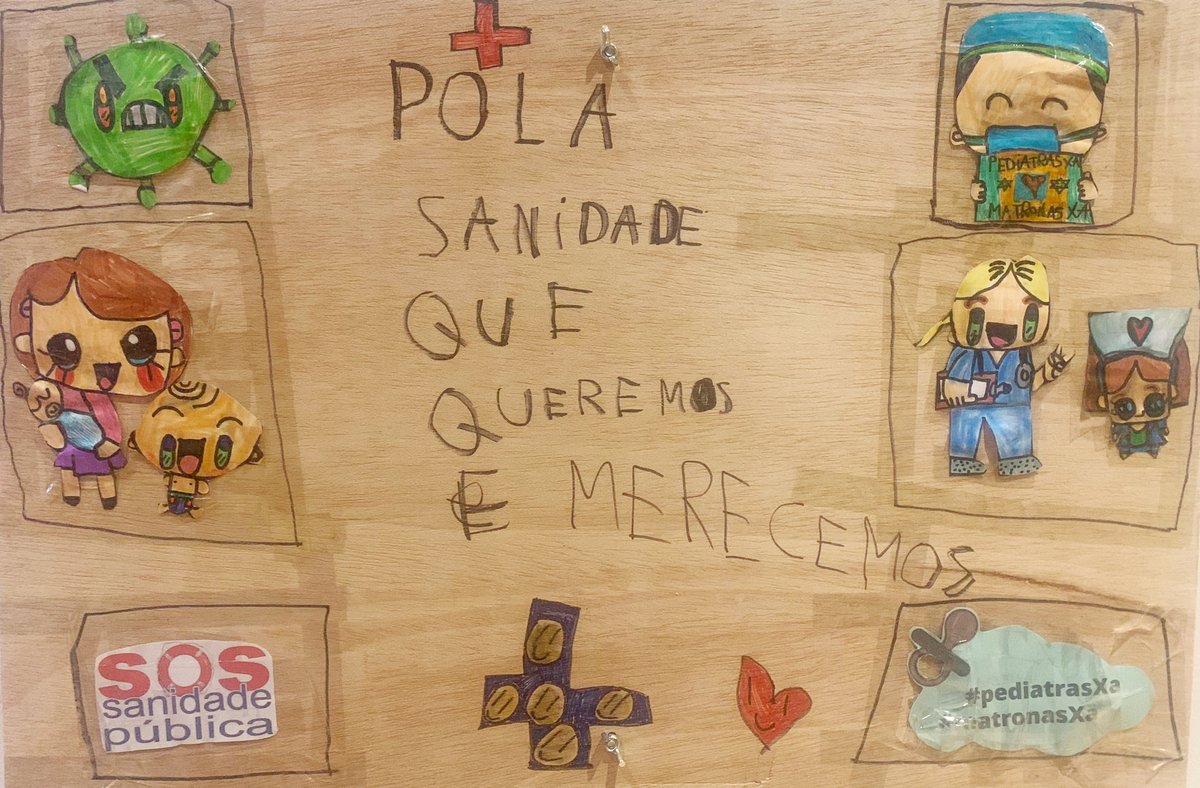 POLA
SANIDADE
QUE
QUEREMOS
E MERECEMOS
PEDIATRAS XA
MATRONAS XA
SOS
sanidade
pública
#pediatrasXa
#matronasXa